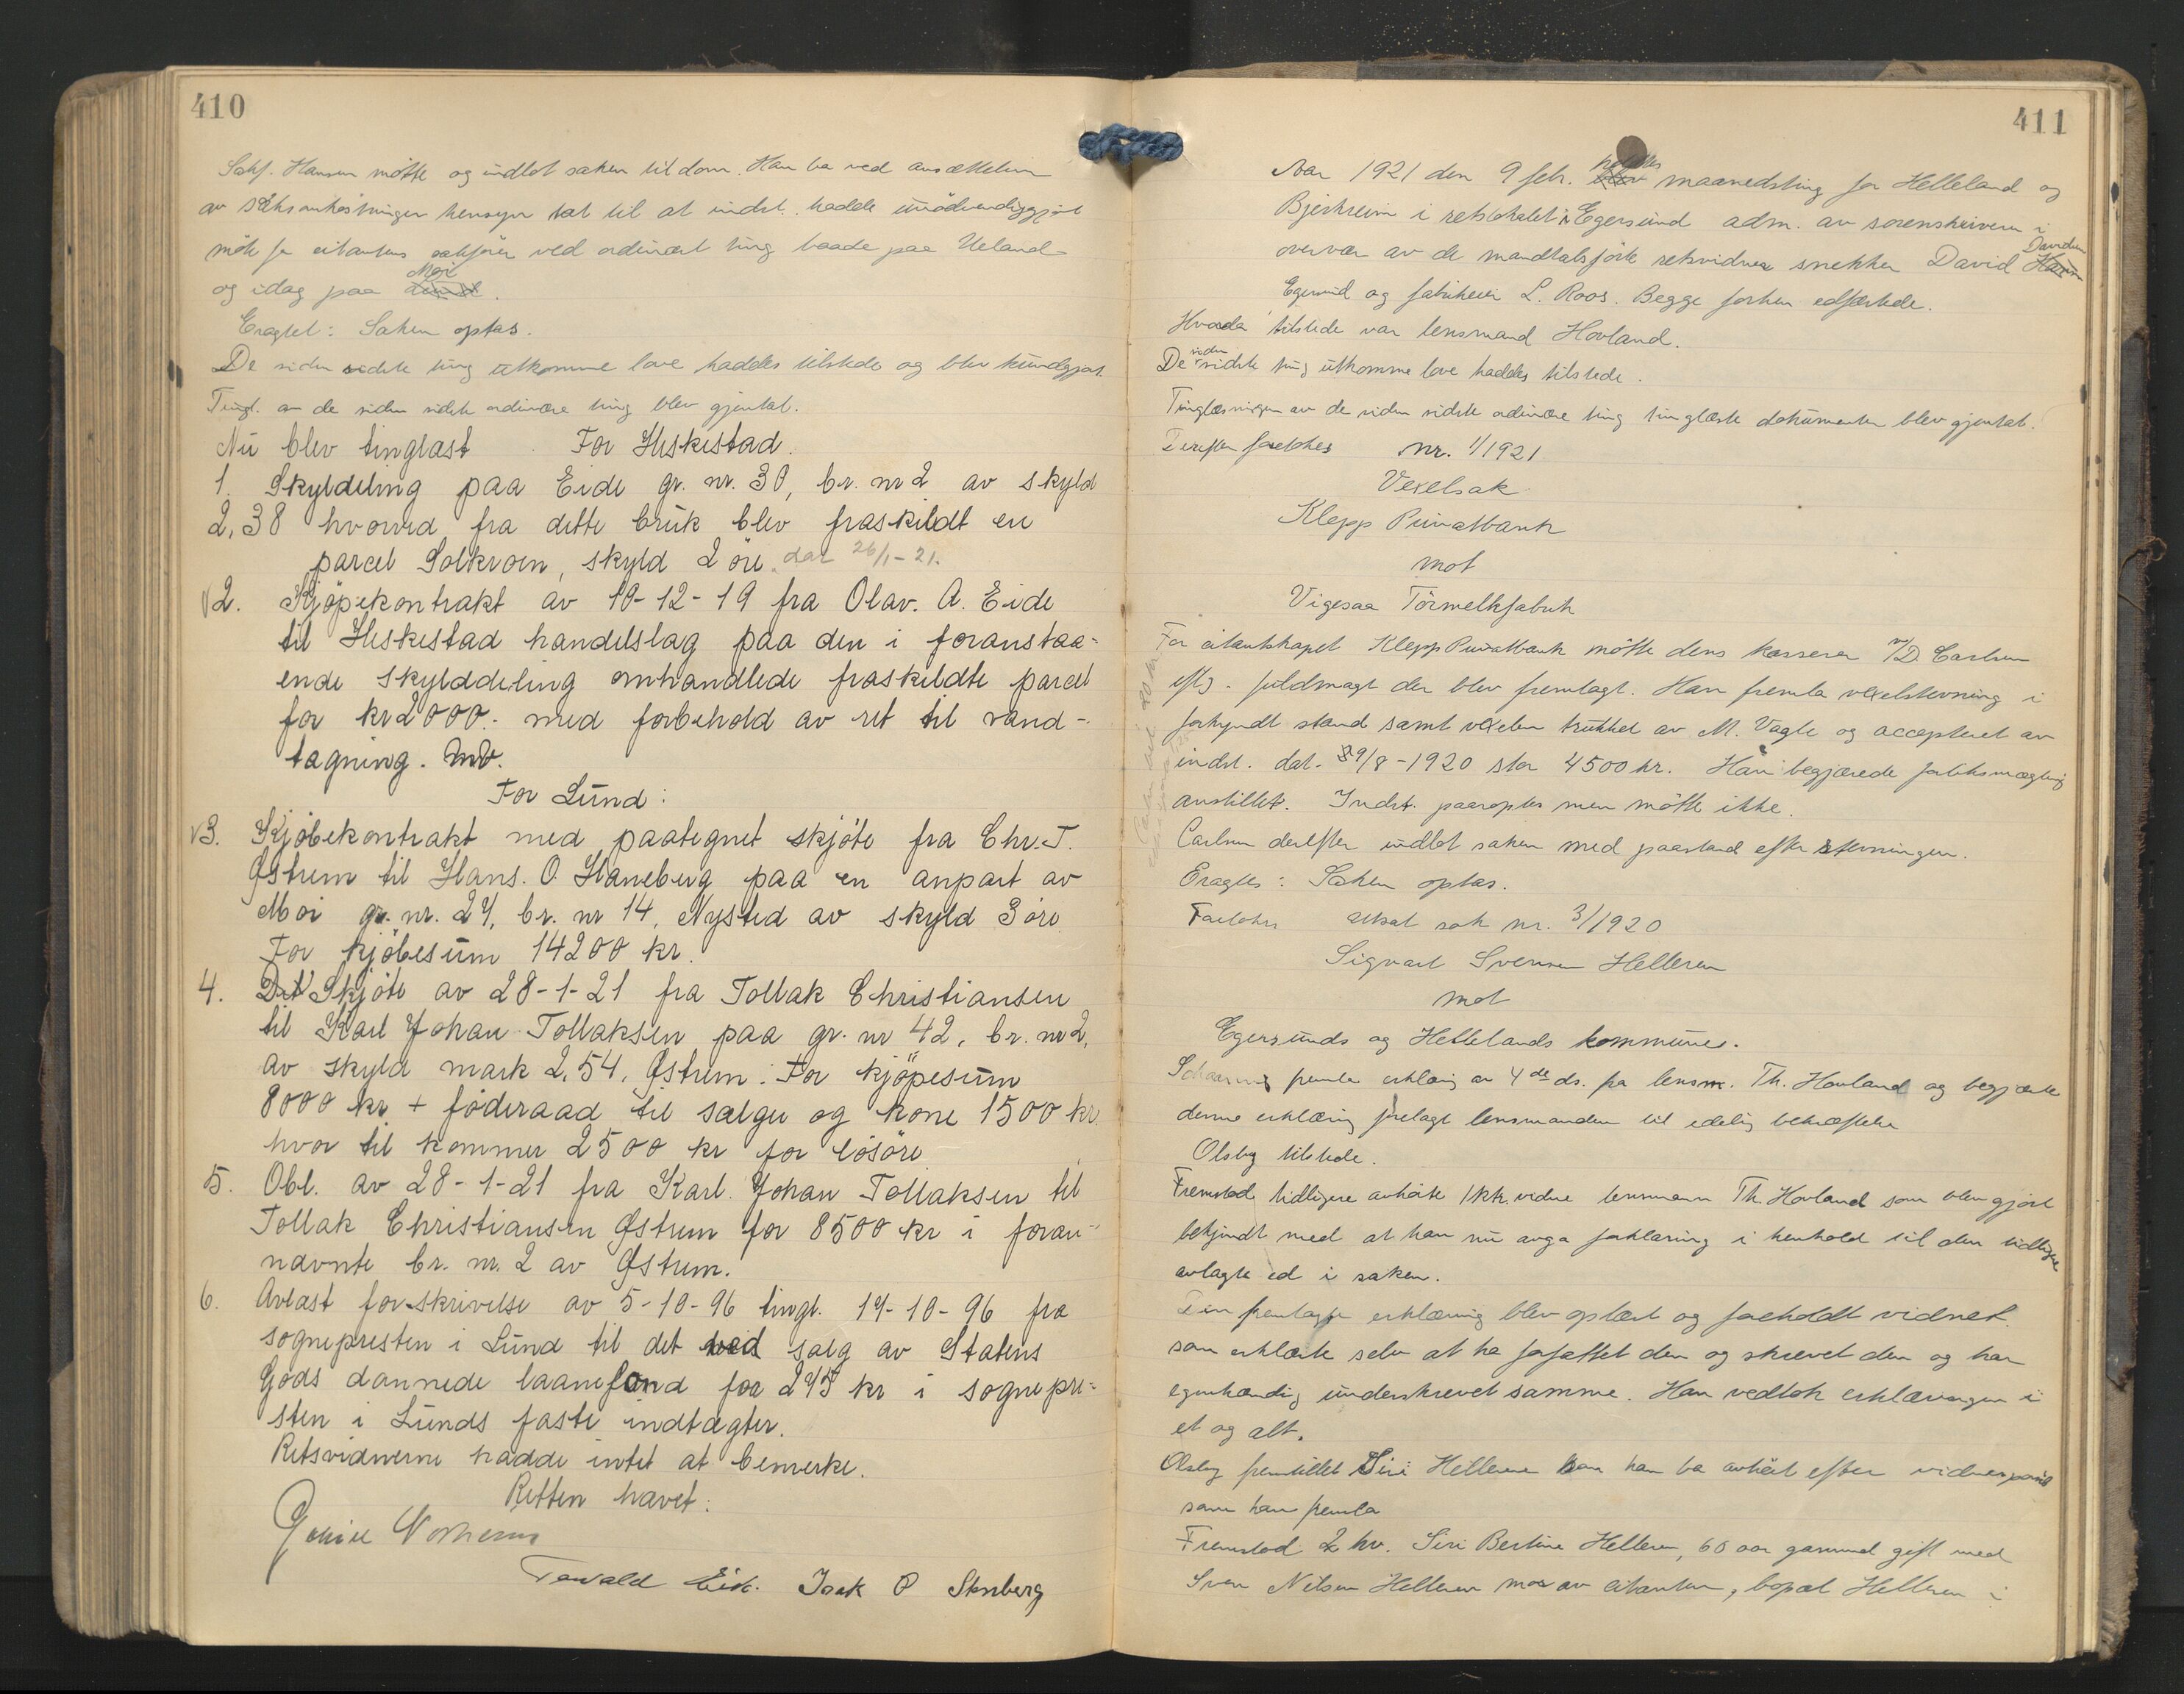 410
Sakf. Hansen møtte og indlot saken til dom. Han ba ved ansættelsen
av saksomkostninger hensyn tat til at indst. hadde unødvendiggjort
møte for citantens sakfører ved ordinært ting baade paa Ueland
og idag paa Moi
Eragtet: Saken optas.
De siden sidste ting utkomne love haddes tilstede og blev kundgjort
Tingl. av de siden sidste ordinære ting blev gjentat.
Nu blev tinglast For Heskestad.
1. Skylddeling paa Eide gr. nr. 30, br. nr 2 av skyld
2,38 hvorved fra dette bruk blev fraskildt en
parcel Solkroen, skyld 2 öre. dat 26/1-21.
V2. Kjöpekontrakt av 10-12-19 fra Olav. A. Eide
til Heskestad handelslag paa den i foranstaa-
ende skylddeling omhandlede fraskildte parcel
for kr 2000.- med forbehold av ret til vand-
tagning. mv.
For Lund:
V3. Kjöbekontrakt med paategnet skjöte fra Chr. T.
Østrem til Hans. O Haneberg paa en anpart av
Moi gr. nr. 24, br. nr 14, Nysted av skyld 3 öre
For kjöbesum 14200 kr.
4. Skjöte av 28-1-21 fra Tollak Christiansen
til Karl Johan Tollaksen paa gr. nr 42, br. nr 2,
av skyld mark 2,54, Østrem. For kjöpesum
8000 kr + föderaad til sælger og kone 1500 kr.
hvor til kommer 2500 kr for lösöre
5. Obl. av 28-1-21 fra Karl. Johan Tollaksen til
Tollak Christiansen Østrem for 8500 kr i foran-
navnte br. nr. 2 av Østrem.
6. Avlast forskrivelse av 5-10-96 tingl. 14-10-96 fra
sognepresten i Lund til det ved salg av Statens
Gods dannede laanefond for 245 kr i sognepre-
sten i Lunds faste indtægter.
Retsvidnerne hadde intet at bemerke.
Retten hævet.
Isak O Stenberg
411
Aar 1921 den 9 febr. holdtes maanedsting for Helleland og
Bjerkreim i retslokalet i Egersund adm. av sorenskriveren i
overvær av de mandtalsførte retsvidner snekker David Davidsen
Egersund og fabrikeier L. Roos. Begge forhen edfæstede.
Hvorda tilstede var lensmand Hovland.
De siden sidste ting utkomne love haddes tilstede.
Tinglæsningen av de siden sidste ordinære ting tinglæste dokumenter blev gjentat.
Derefter foretokes nr. 1/1921
Vexelsak
Klepp Privatbank
mot
Vigesaa Tørmelkfabrik
For citantskapet Klepp Privatbank møtte dens kasserer Carlsen
eftg. fuldmagt der blev fremlagt. Han fremla vexelstevning i
forkyndt stand samt vexelen trukket av M. Vagle og accepteret av
indst. dat. 9/8-1920 stor 4500 kr. Han begjærede forliksmægling
anstillet. Indst. paaroptes men møtte ikke.
Carlsen derefter indlot saken med paastand efter stevningen.
Eragtes: Saken optas.
Foretokes utsat sak nr. 3/1920
Sigvart Svensen Helleren
mot
Egersunds og Hellelands kommuner.
fremla erklæring av 4de ds. fra lensm. Th. Hovland og begjærte
denne erklæring forelagt lensmanden til edelig bekræftelse
Olsby tilstede.
Fremstod tidligere avhørte vidne lensmann Th. Hovland som blev gjort
bekjendt med at han nu avga forklaring i henhold til den tidligere
avlagte ed i saken.
Den fremlagte erklæring blev oplæst og foreholdt vidnet
som erklærte selv at ha forfattet den og skrevet den og har
egenhændig underskrevet samme. Han vedtok erklæringen i
et og alt.
Olsby fremstillet Siri Helleren som han ba avhørt efter
som han fremla
Fremstod 2 hv. Siri Bertine Helleren, 60 aar gammel gift med
Sven Nilsen Helleren mor av citanten, bopæl Helleren i